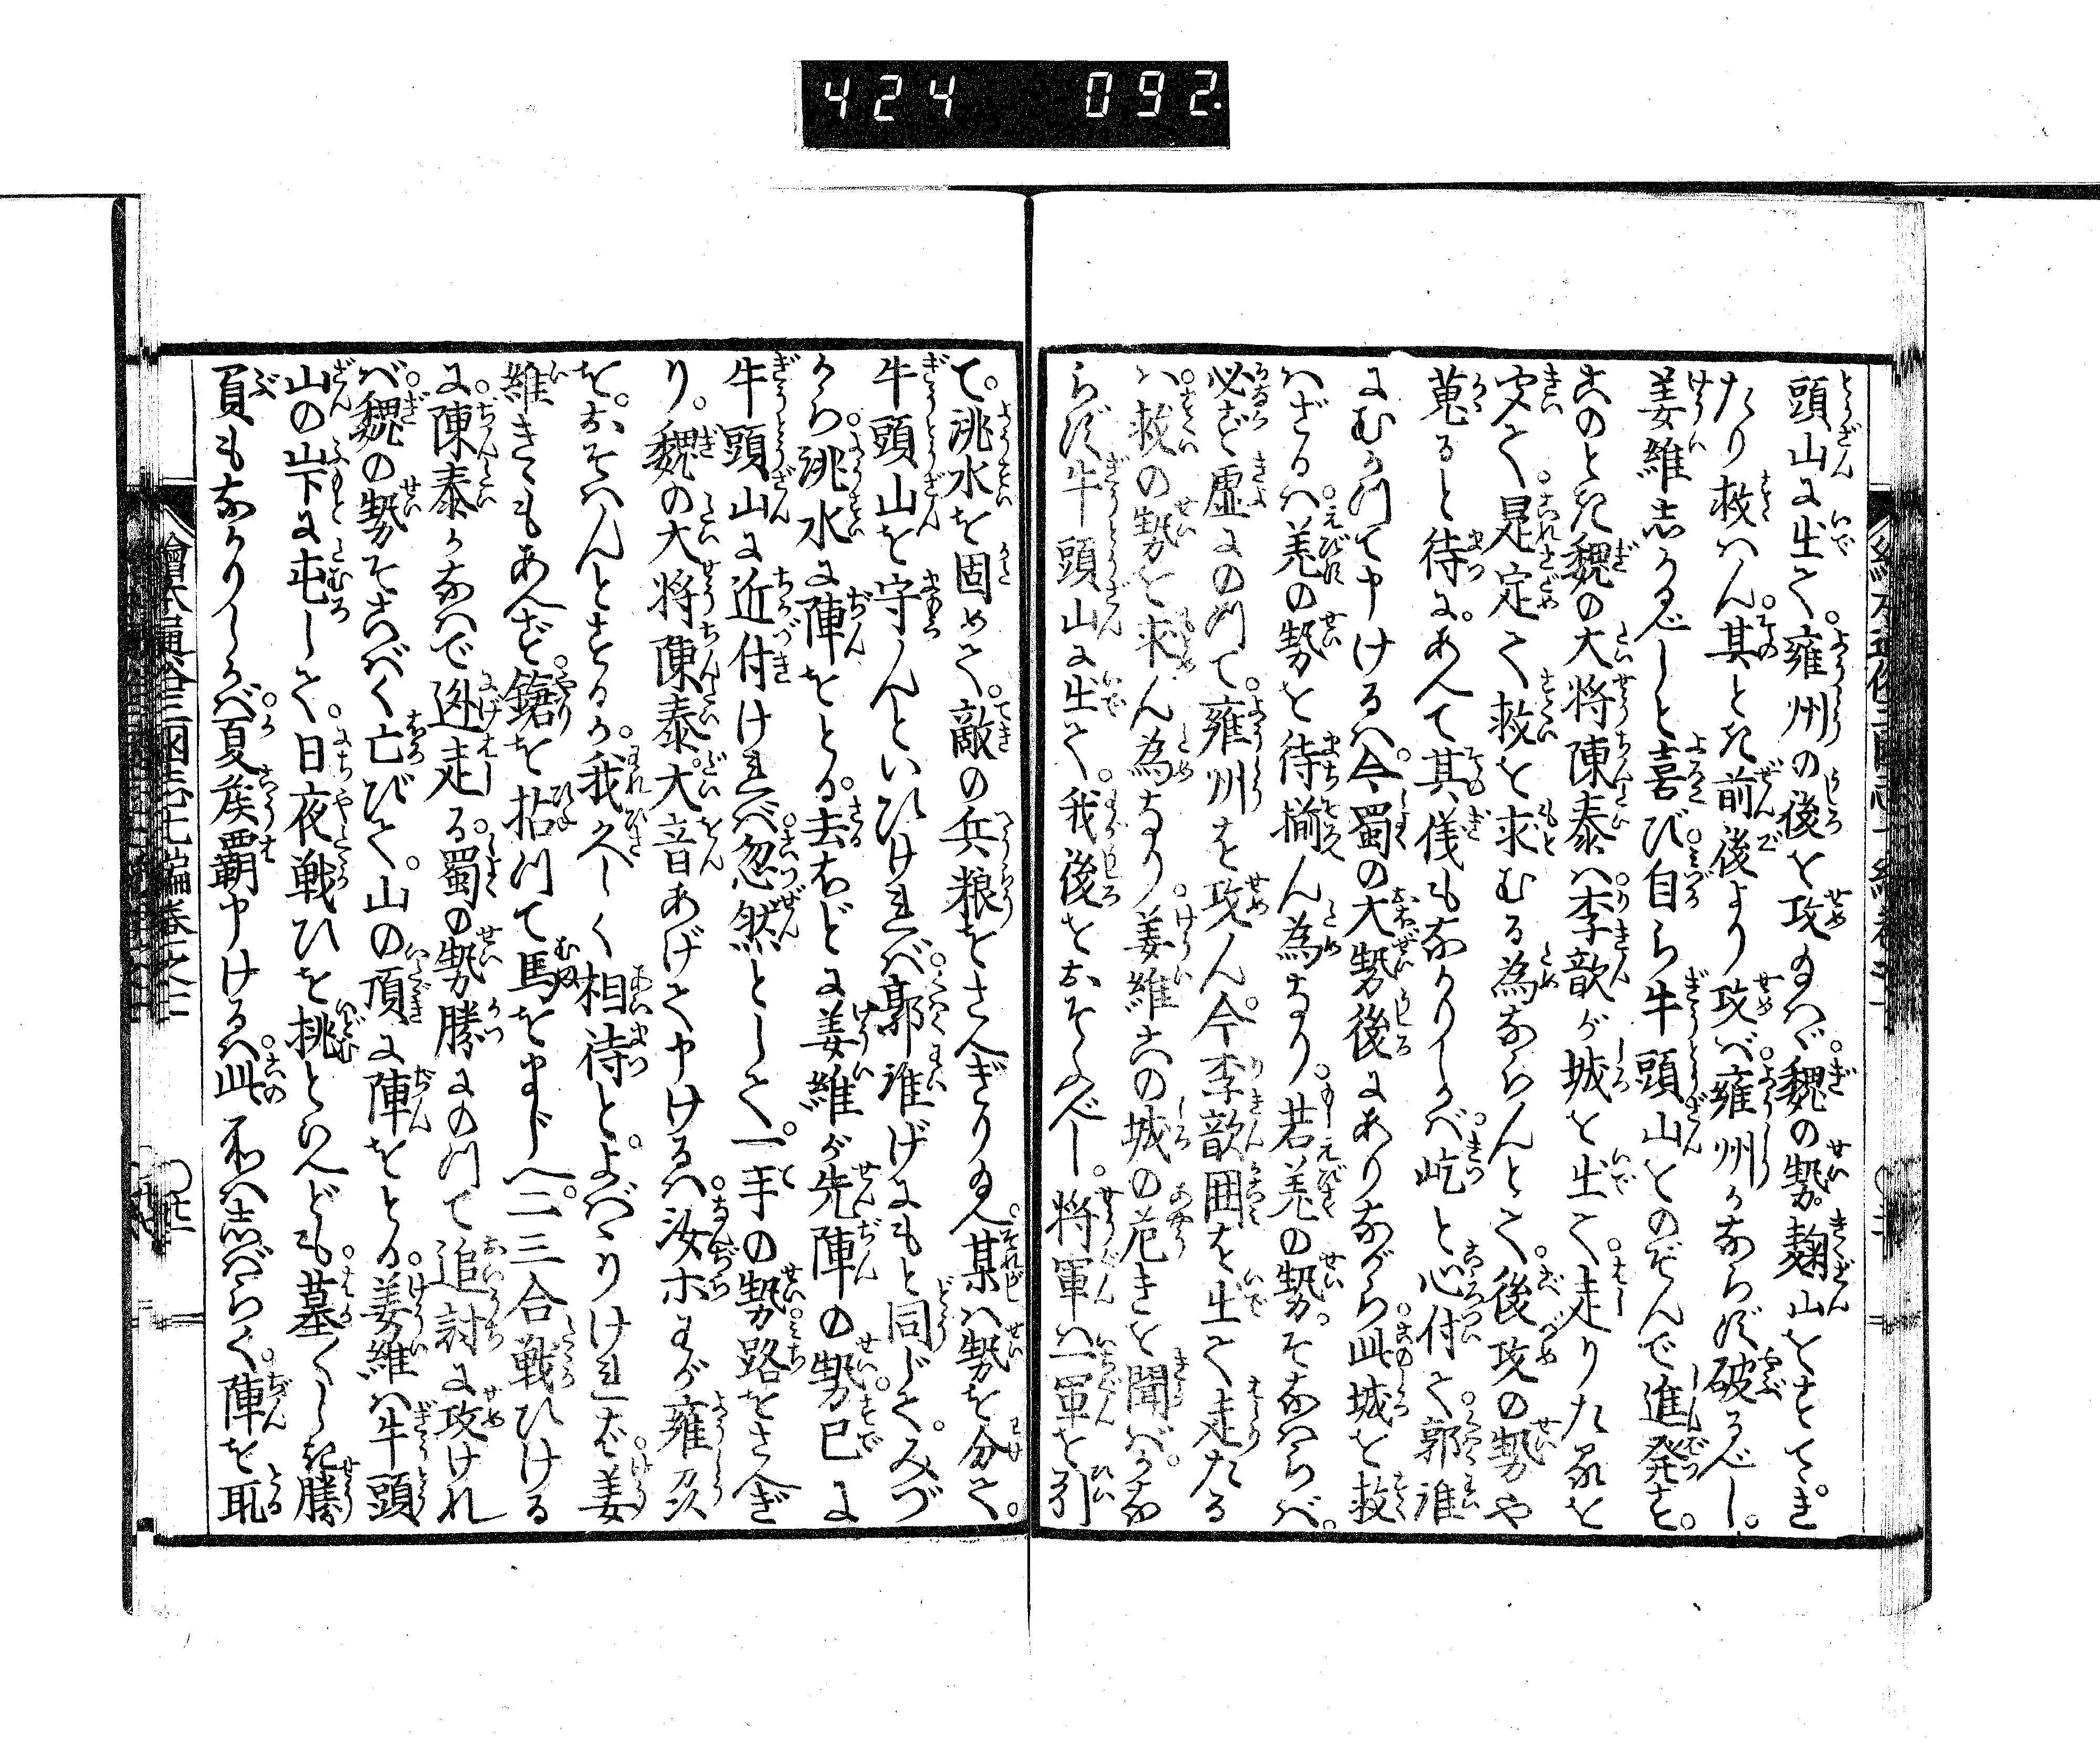 424 092
頭山に出て。雍州の後を攻給へバ。魏の勢。麹山をすてゝ。き
たり救ハん。其とき前後より攻バ。雍州かならず破るべし。
姜維志かるべしと喜び。自ら牛頭山をのぞんで進発す。
このとき魏の大将陳泰ハ。李歆が城を出て。走りたるを
見て。是定て救を求むる為ならんとて。後攻の勢や
蒐ると待に。あへて其儀もなかりしかバ。屹と心付て。郭淮
にむかつて申けるハ。今蜀の大勢後にありながら。此城を救
ハざるハ。羌の勢を待揃ん為なり。若羌の勢。そなハらバ。
必ず虚にのつて。雍州を攻ん。今李歆囲を出て走たる
ハ。救の勢を求ん為なり。姜維この城の危きを聞バ。かな
らず牛頭山に出て。我後をおそふべし。将軍ハ一軍を引
て。洮水を固めて。敵の兵粮をさへぎり給へ。某ハ勢を分て。
牛頭山を守んといひけれバ。郭淮げにもと同じて。みづ
から洮水に陣をとる。去ほどに姜維が先陣の勢。已に
牛頭山に近付けれバ。忽然として。一手の勢。路をさへぎ
り。魏の大将陳泰。大音あげて申けるハ。汝ホわが雍州
を。おそハんとするか。我久しく相待と。よバゝりけれバ。姜
維きゝもあへず。鎗を拈つて馬をまじへ。二三合戦ひける
に。陳泰かなハで迯走る。蜀の勢勝にのつて追討に攻けれ
バ。魏の勢そこばく亡びて。山の頂に陣をとる。姜維ハ牛頭
山の山下に屯して。日夜戦ひを挑といへども。墓〱しき勝
負もなかりしかバ。夏侯覇申けるハ。此不ハ志ばらく。陣を取
繪本通俗三國志七編巻之二